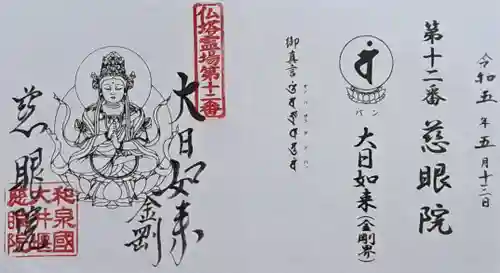 令和五年五月十二日
第十二番 慈眼院
バン
大日如来(金剛界)
御真言
仏塔霊場第十二番
大日如来
金剛
慈眼院
和泉國
大井堰
慈眼院